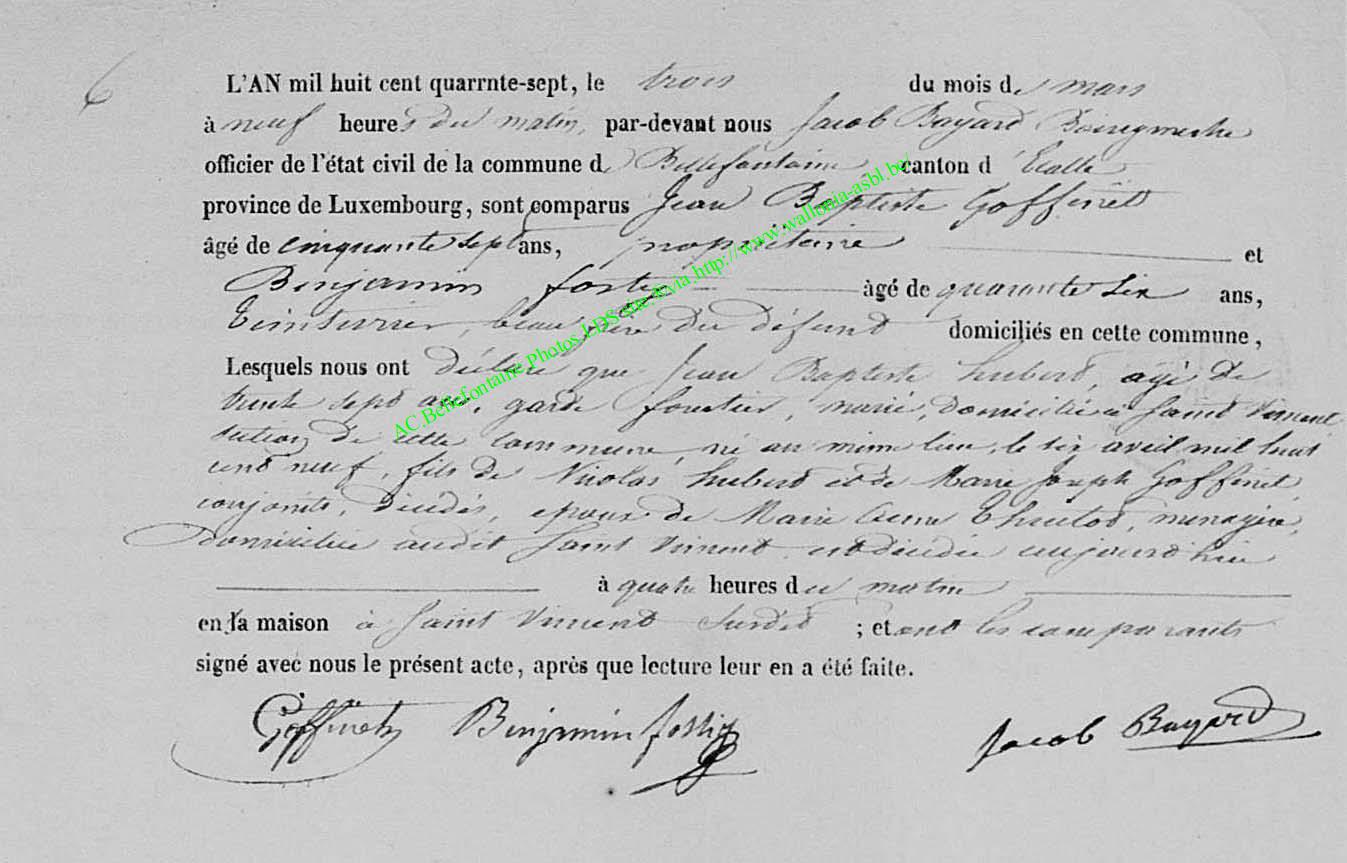 6
L'AN mil huit cent quarrnte-sept, le trois du mois de mars
à neuf heures du matin, par-devant nous Jacob Bayard Bourgmestre
officier de l'état civil de la commune de Bellefontaine, canton d'Etalle
province de Luxembourg, sont comparus Jean Baptiste Goffinet
âgé de cinquante sept ans, propriétaire et
Benjamin âgé de quarante six ans,
Teinturier, beau frère du défunt domiciliés en cette commune,
Lesquels nous ont déclaré que Jean Baptiste hubert, agé de
trente sept ans, garde forestier, marié, domicilié à Saint Vincent
section de cette Commune, né au même lieu, le six avril mil huit
cent neuf, fils de Nicolas hubert et de Marie Joseph Goffinet,
conjoints, décédés, epoux de Marie Anne ménagère,
Domiciliée audit Saint Vincent est décédé aujourd'hui
à quatre heures du matin
en sa maison à Saint Vincent susdit ; et ont les comparants
signé avec nous le présent acte, après que lecture leur en a été faite.
Goffinet Benjamin Jacob Bayard
AC.Bellefontaine,Photos LDS site via http://www.wallonia-asbl.be/